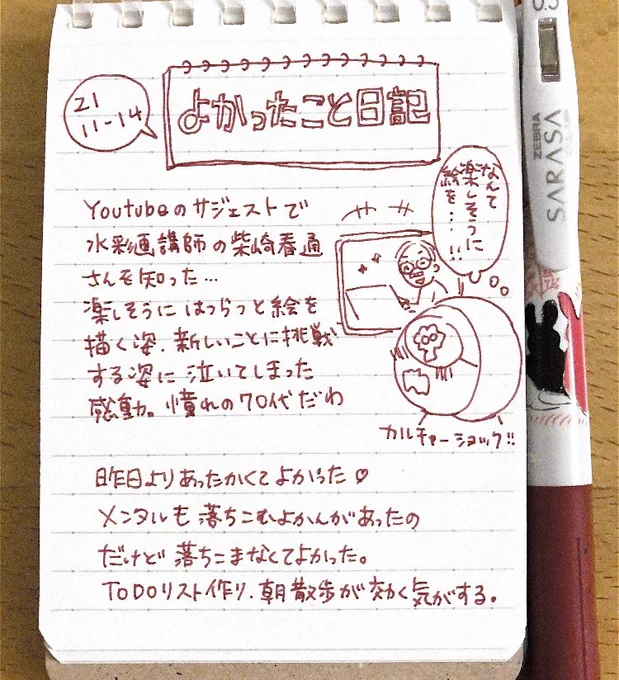 21
11-14
よかったこと日記
Youtubeのサジェストで
水彩画講師の柴崎春通
さんを知った…
楽しそうにはつらつと絵を
描く姿、新しいことに挑戦
する姿に泣いてしまった
感動。憧れの70代だわ
なんて
楽しそうに
絵を…!!
カルチャーショック!!
昨日よりあったかくてよかった♡
メンタルも落ちこむよかんがあったの
だけど落ちこまなくてよかった。
TODOリスト作り、朝散歩が効く気がする。
0.5
ZEBRA
SARASA